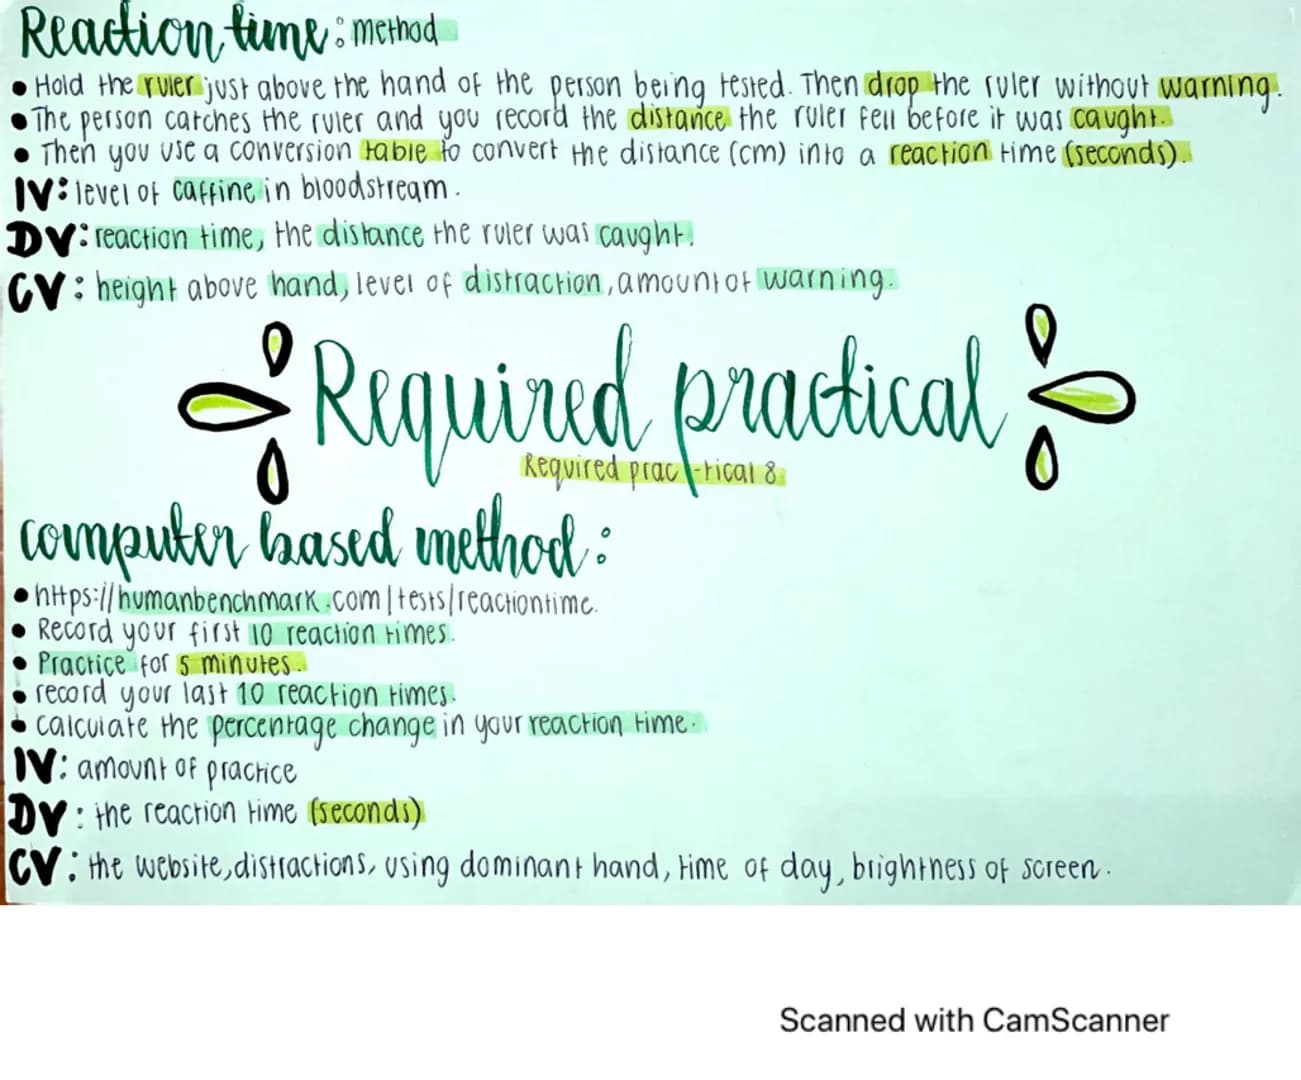 Reaction time: method
• Hold the ruler just above the hand of the person being tested. Then drop the ruler without warning.
• The person catches the ruler and you record the distance the ruler fell before it was caught.
• Then you use a conversion table to convert the distance (cm) into a reaction time (seconds).
IV: level of caffine in bloodstream.
DV: reaction time, the distance the ruler was caught.
CV: height above hand, level of distraction, amount of warning.
Required practical
Required prac-tical 8
computer based method:
• https://humanbenchmark.com/tests/reactiontime.
• Record your first 10 reaction times.
• Practice for 5 minutes.
• record your last 10 reaction times.
• calculate the percentage change in your reaction time.
IV: amount of practice
DV: the reaction time (seconds)
CV: the website, distractions, using dominant hand, time of day, brightness of screen.
Scanned with CamScanner